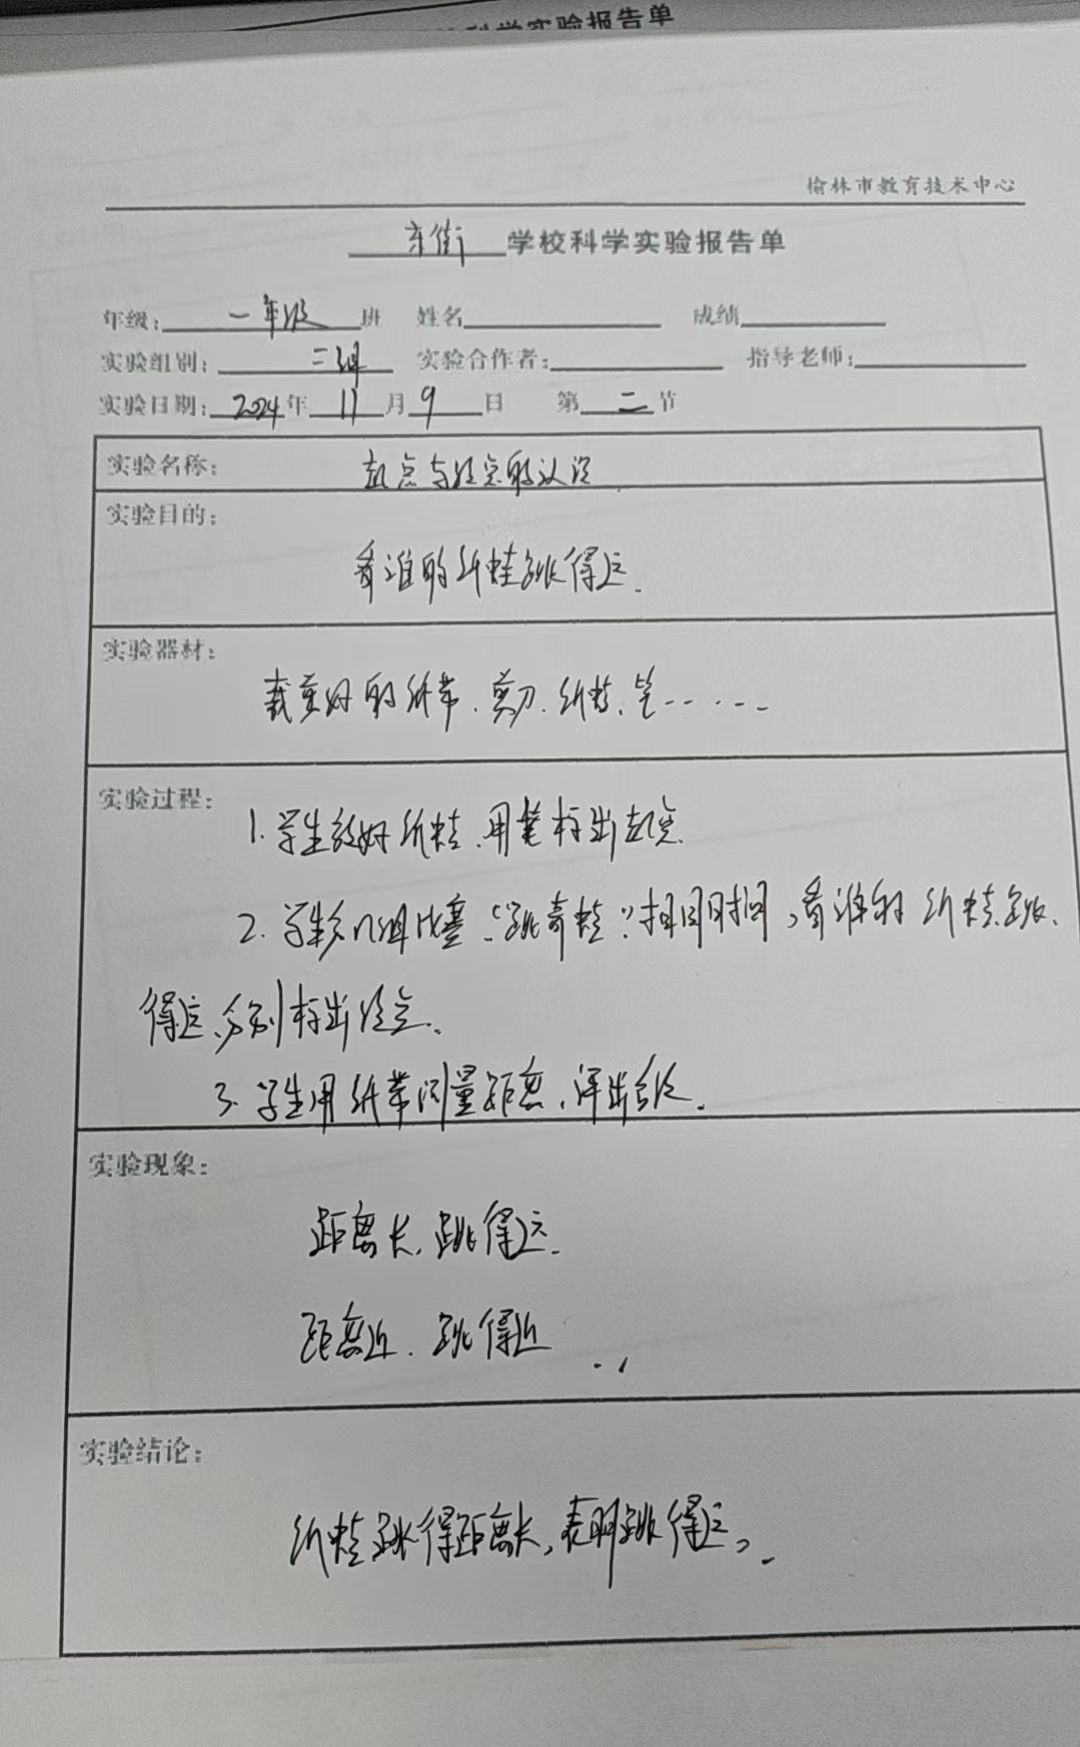 科学实验报告单
榆林市教育技术中心
东街学校科学实验报告单
年级：一年级班 姓名 成绩
实验组别：二组 实验合作者： 指导老师：
实验日期：2024年11月9日 第二节
实验名称： 起点与终点的认识
实验目的：
看谁的纸蛙跳得远.
实验器材：
裁剪好的纸带、剪刀、纸蛙、笔……
实验过程：
1. 学生放好纸蛙、用笔标出起点
2. 学生分组比赛“跳奇蛙”相同时间，看谁的纸蛙跳
得远、分别标出终点.
3. 学生用纸带测量距离，评出.
实验现象：
距离长. 跳得远.
距离近. 跳得近
实验结论：
纸蛙跳得距离长，表明跳得远。